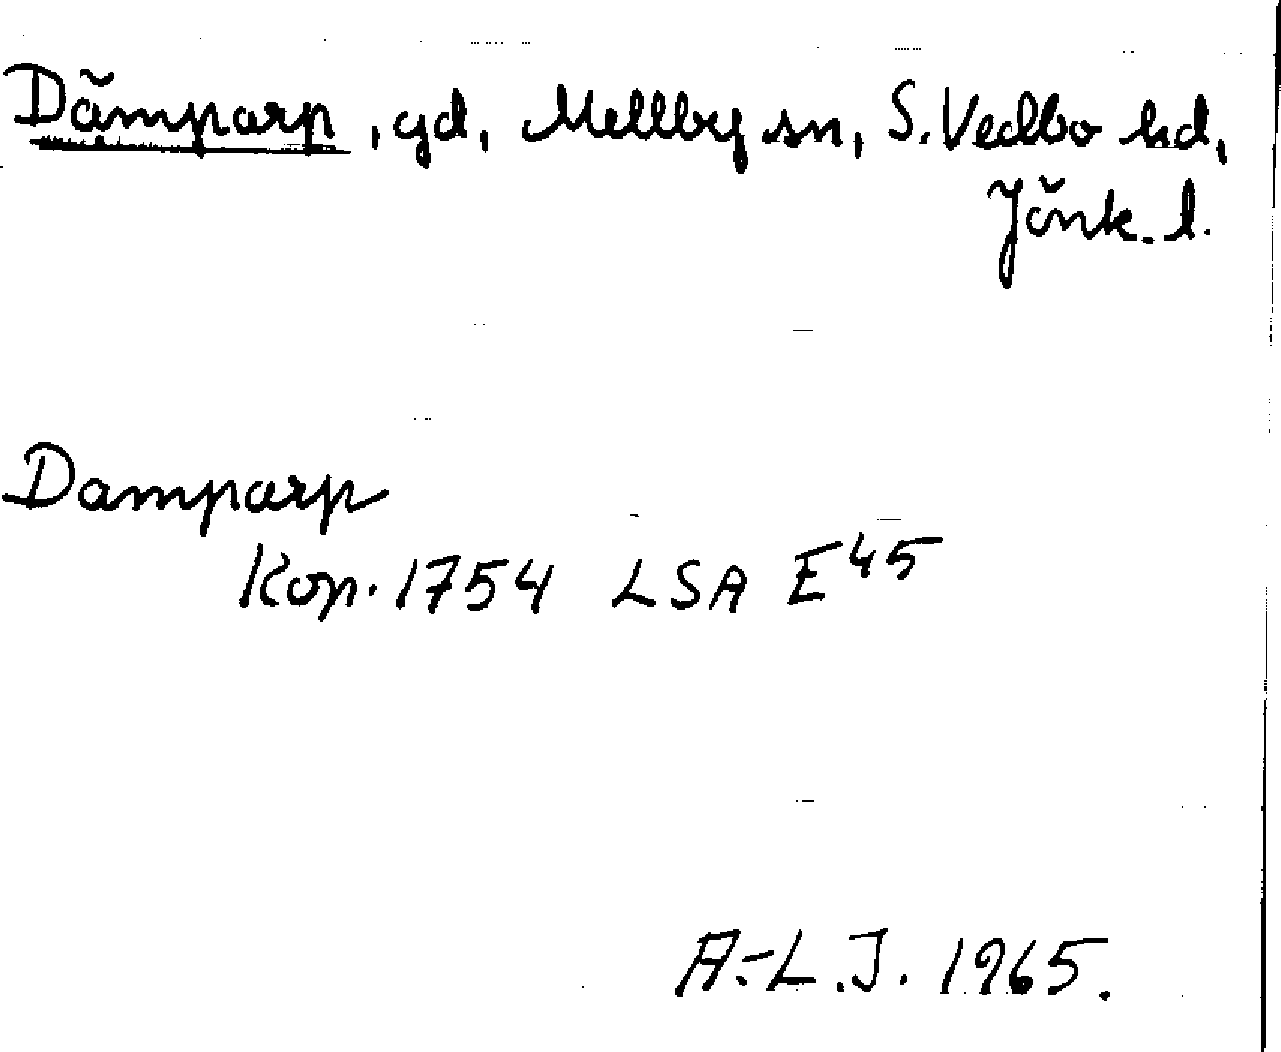 Dämparp, gd, Mellby sn, S. Vedbo hd,
Jönk. l.
Damparp
Kop. 1754 LSA E45
A.-L.J. 1965.